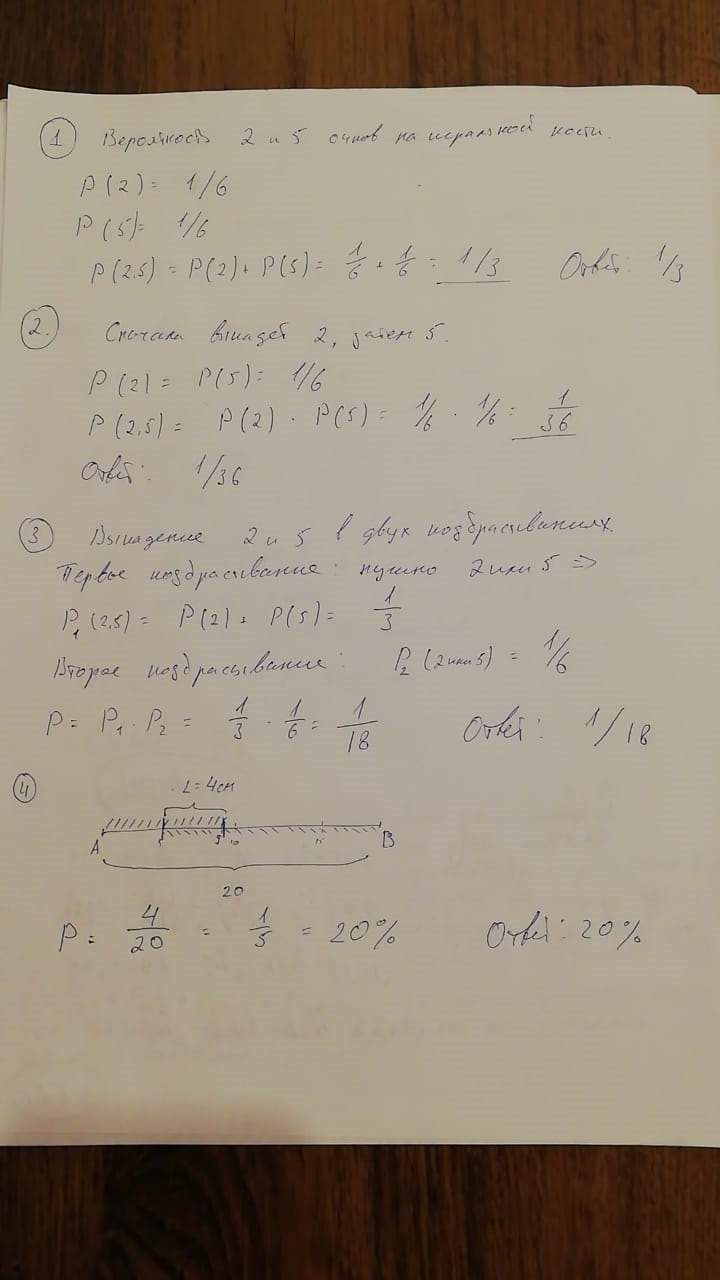 1 Вероятность 2 и 5 очков на игральной кости.
P(2) = 1/6
P(5) = 1/6
P(2,5) = P(2) + P(5) = 1/6 + 1/6 = 1/3 Ответ: 1/3
2. Сначала выпадет 2, затем 5.
P(2) = P(5) = 1/6
P(2,5) = P(2) · P(5) = 1/6 · 1/6 = 1/36
Ответ: 1/36
3 Выпадение 2 и 5 в двух подбрасываниях.
Первое подбрасывание: нужно 2 или 5 =>
P₁(2,5) = P(2) + P(5) = 1/3
Второе подбрасывание: P₂(2 или 5) = 1/6
P = P₁ · P₂ = 1/3 · 1/6 = 1/18 Ответ: 1/18
4
L = 4см
A 5 9 10 15 B
20
P = 4/20 = 1/5 = 20% Ответ: 20%